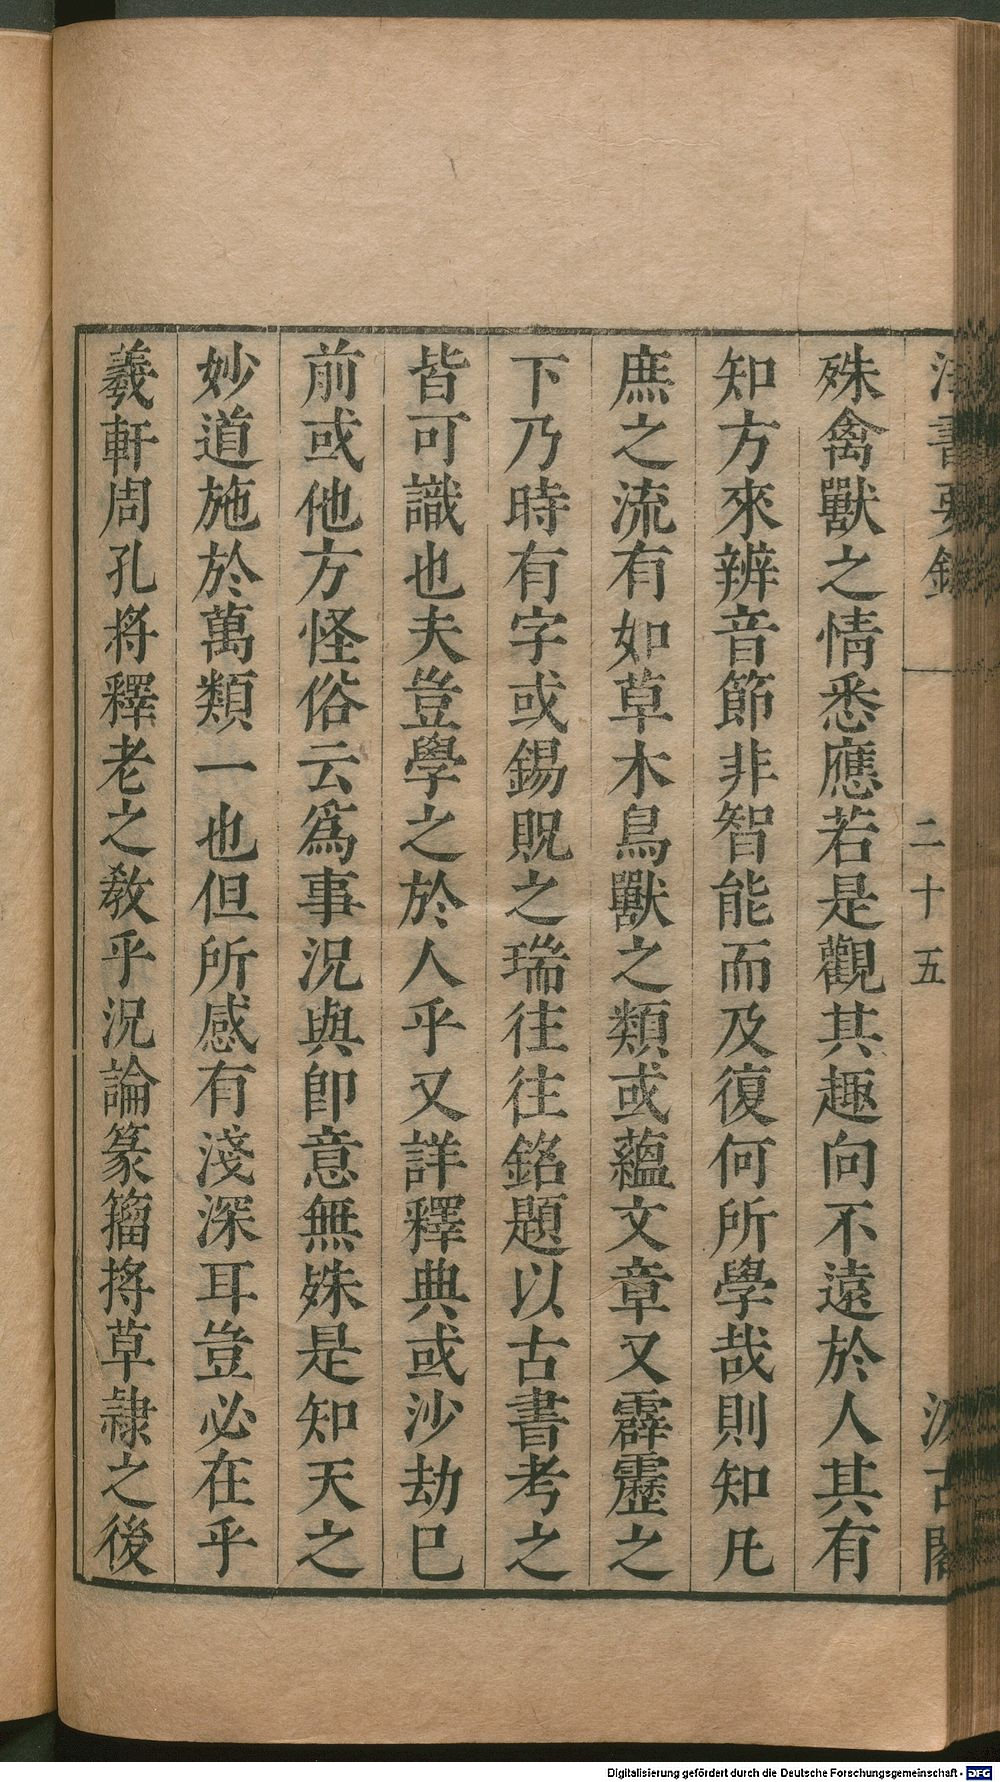 法書要錄
二十五
汲古閣
殊禽獸之情悉應若是觀其趣向不遠於人其有
知方來辨音節非智能而及復何所學哉則知凡
庶之流有如草木鳥獸之類或蘊文章又霹靂之
下乃時有字或錫貺之瑞往往銘題以古書考之
皆可識也夫豈學之於人乎又詳釋典或沙劫已
前或他方怪俗云爲事況與卽意無殊是知天之
妙道施於萬類一也但所感有淺深耳豈必在乎
羲軒周孔將釋老之敎乎況論篆籀將草隷之後
Digitalisierung gefördert durch die Deutsche Forschungsgemeinschaft - DFG